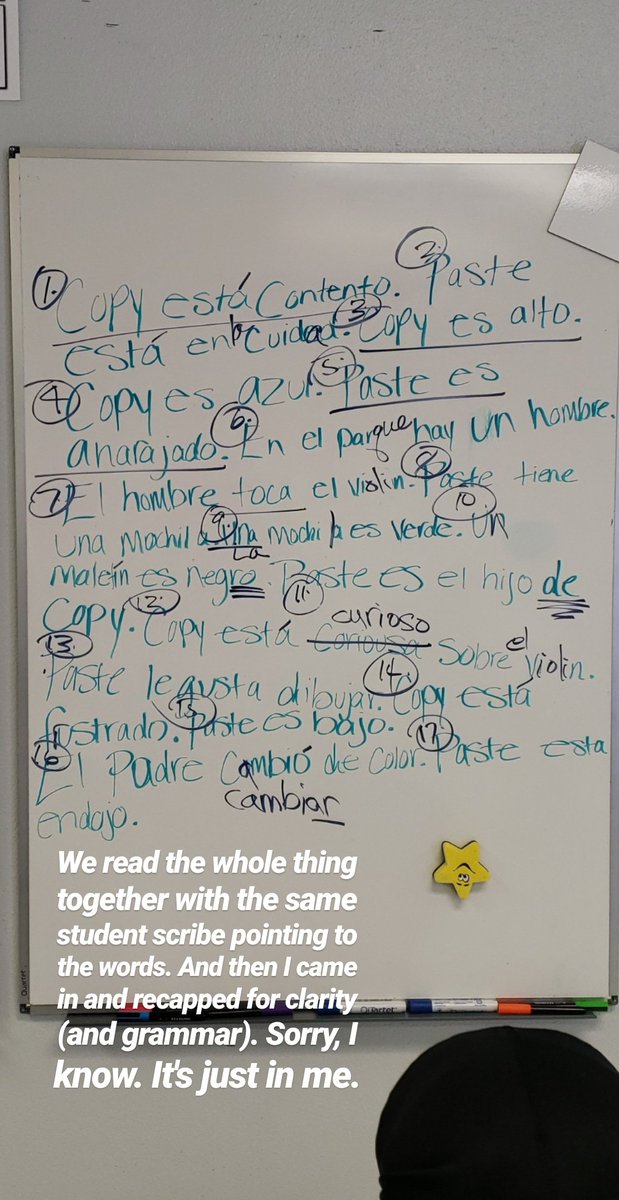 1. Copy está Contento. 2. Paste
está en la Cuidad. 3. Copy es alto.
4. Copy es azul. 5. Paste es
anarajado. 6. En el parque hay un hombre.
7. El hombre toca el violin. 8. Paste tiene
una Mochila 9. Una La mochila es verde. 10. Un
maletín es negro. 11. Paste es el hijo de
Copy. 12. Copy está curioso sobre el violin.
13. Paste le gusta dibujar. 14. Copy está
frstrado. 15. Paste es bajo.
16. El Padre cambió de color. 17. Paste esta
cambiar
enojo.
Quartet
Quartet
We read the whole thing
together with the same
student scribe pointing to
the words. And then I came
in and recapped for clarity
(and grammar). Sorry, I
know. It's just in me.